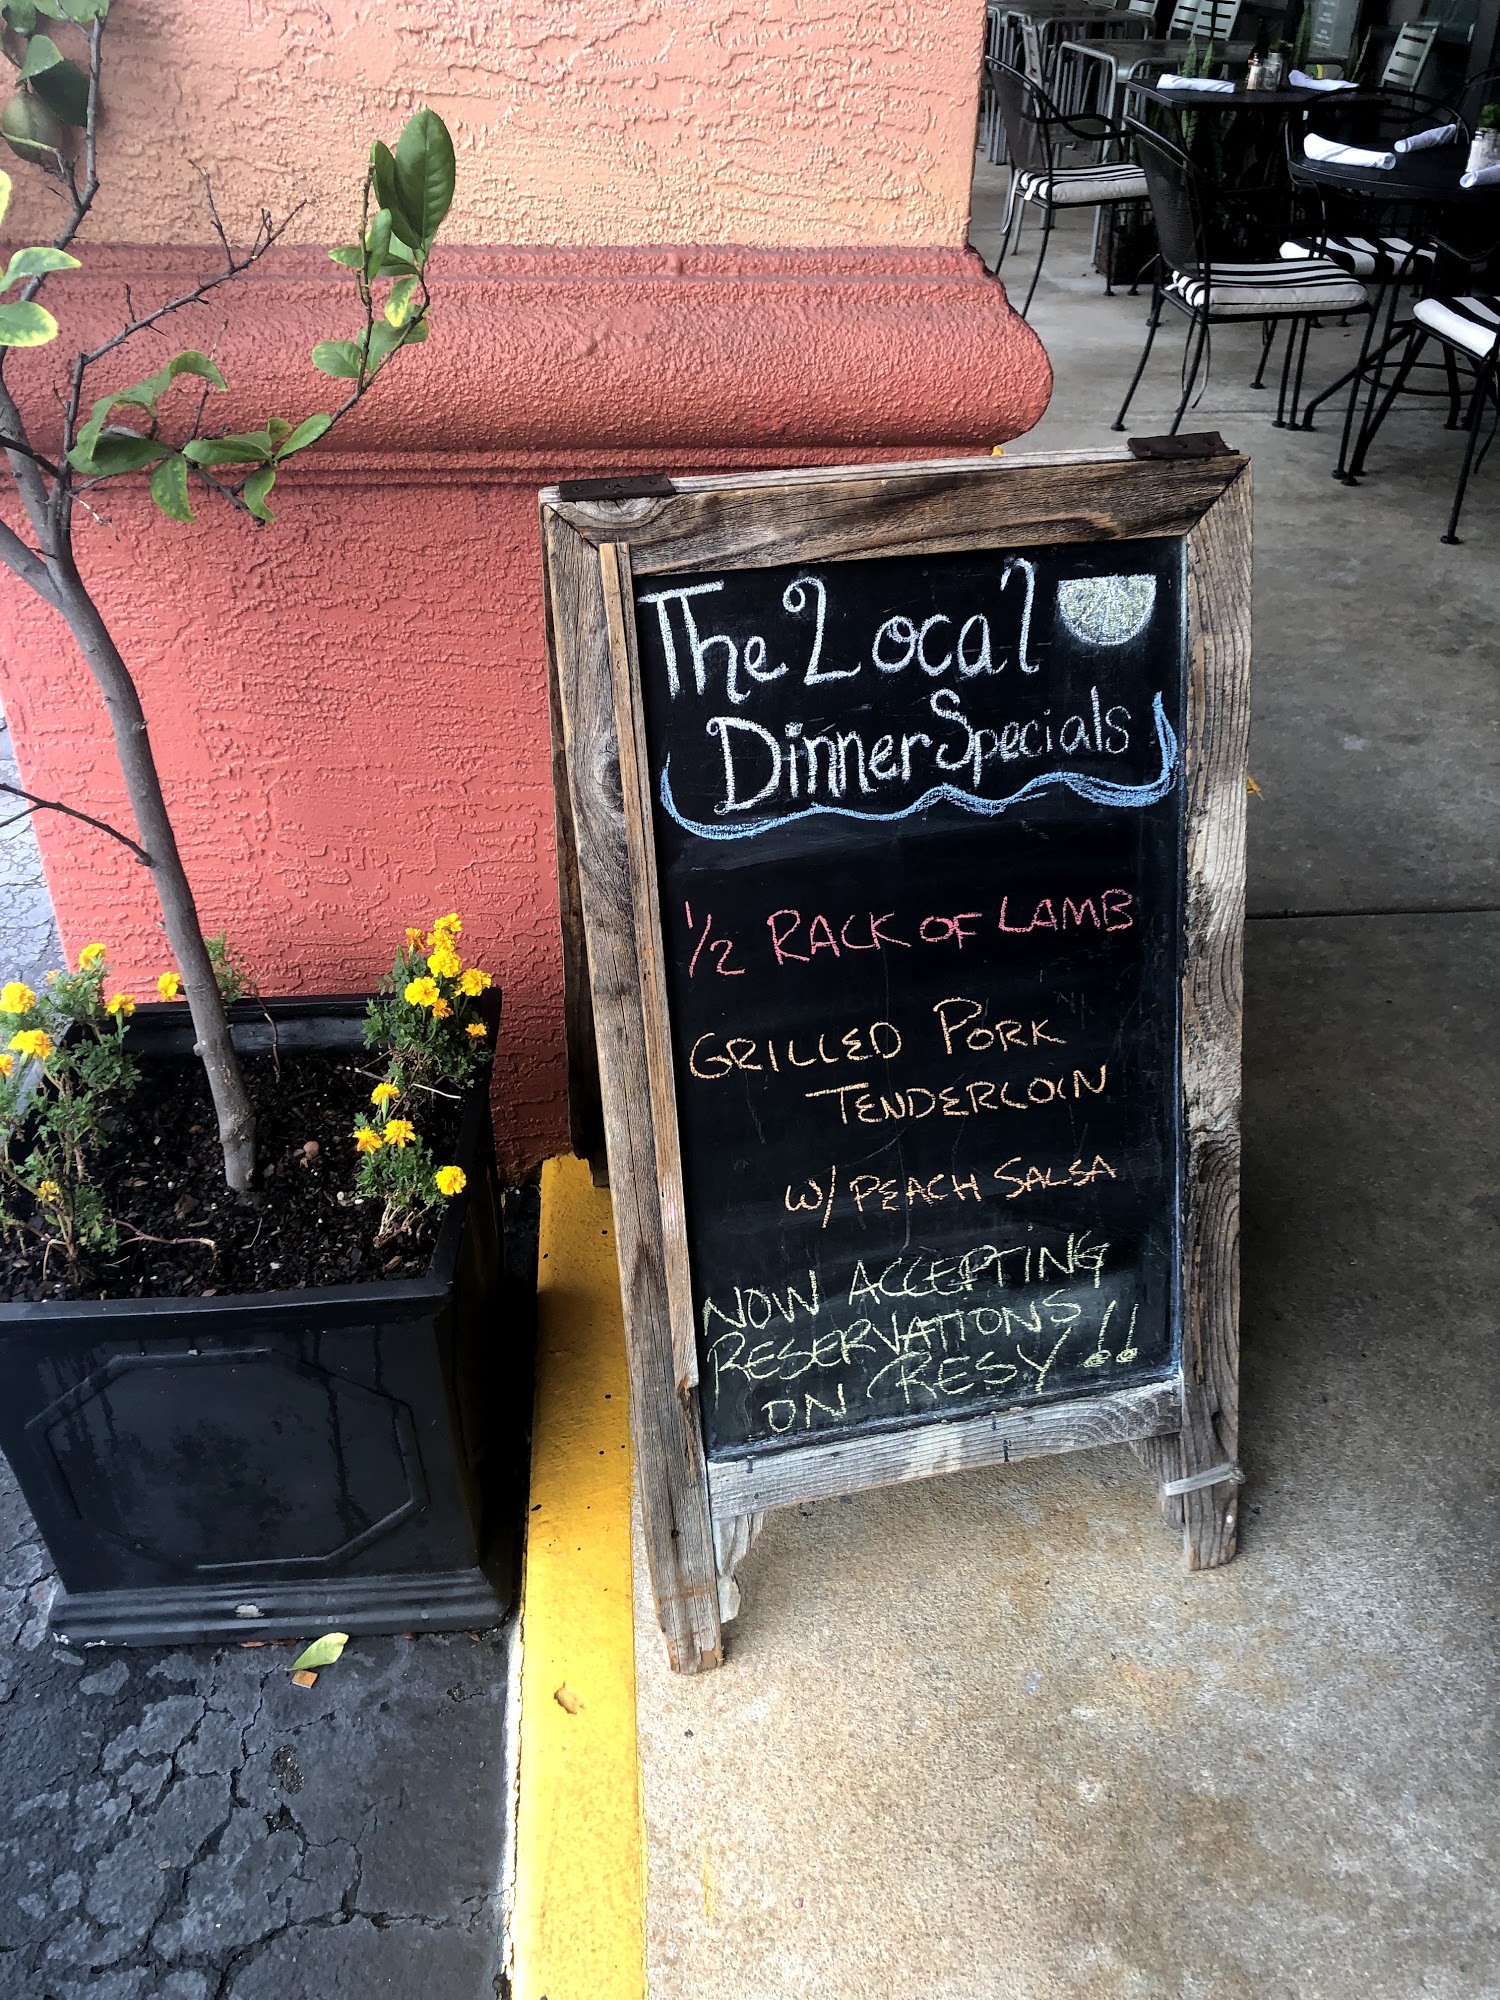 The Local
Dinner Specials
1/2 RACK OF LAMB
GRILLED PORK
TENDERLOIN
W/ PEACH SALSA
NOW ACCEPTING
RESERVATIONS
ON RESY!!